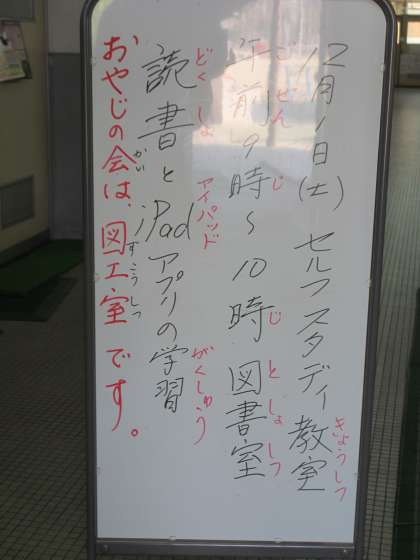 12月1日(土) セルフスタディ教室
きょうしつ
午前9時~10時 図書室
ごぜん じ じ としょしつ
読書とiPadアプリの学習
どくしょ アイパッド がくしゅう
おやじの会は、図工室です。
かい ずこうしつ